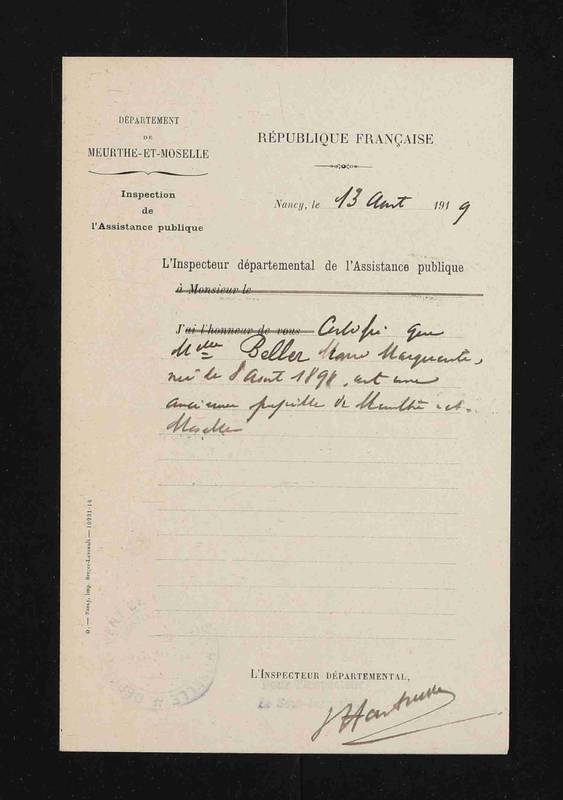 DÉPARTEMENT
DE
MEURTHE-ET-MOSELLE
Inspection
de
l'Assistance publique
RÉPUBLIQUE FRANÇAISE
Nancy, le 13 Août 1919
L'Inspecteur départemental de l'Assistance publique
à Monsieur le
J'ai l'honneur de vous Certifie que
Mlle Beller Marie Marguerite,
née le 8 Août 1898, est une
ancienne pupille de Meurthe-et-
Moselle
L'INSPECTEUR DÉPARTEMENTAL,